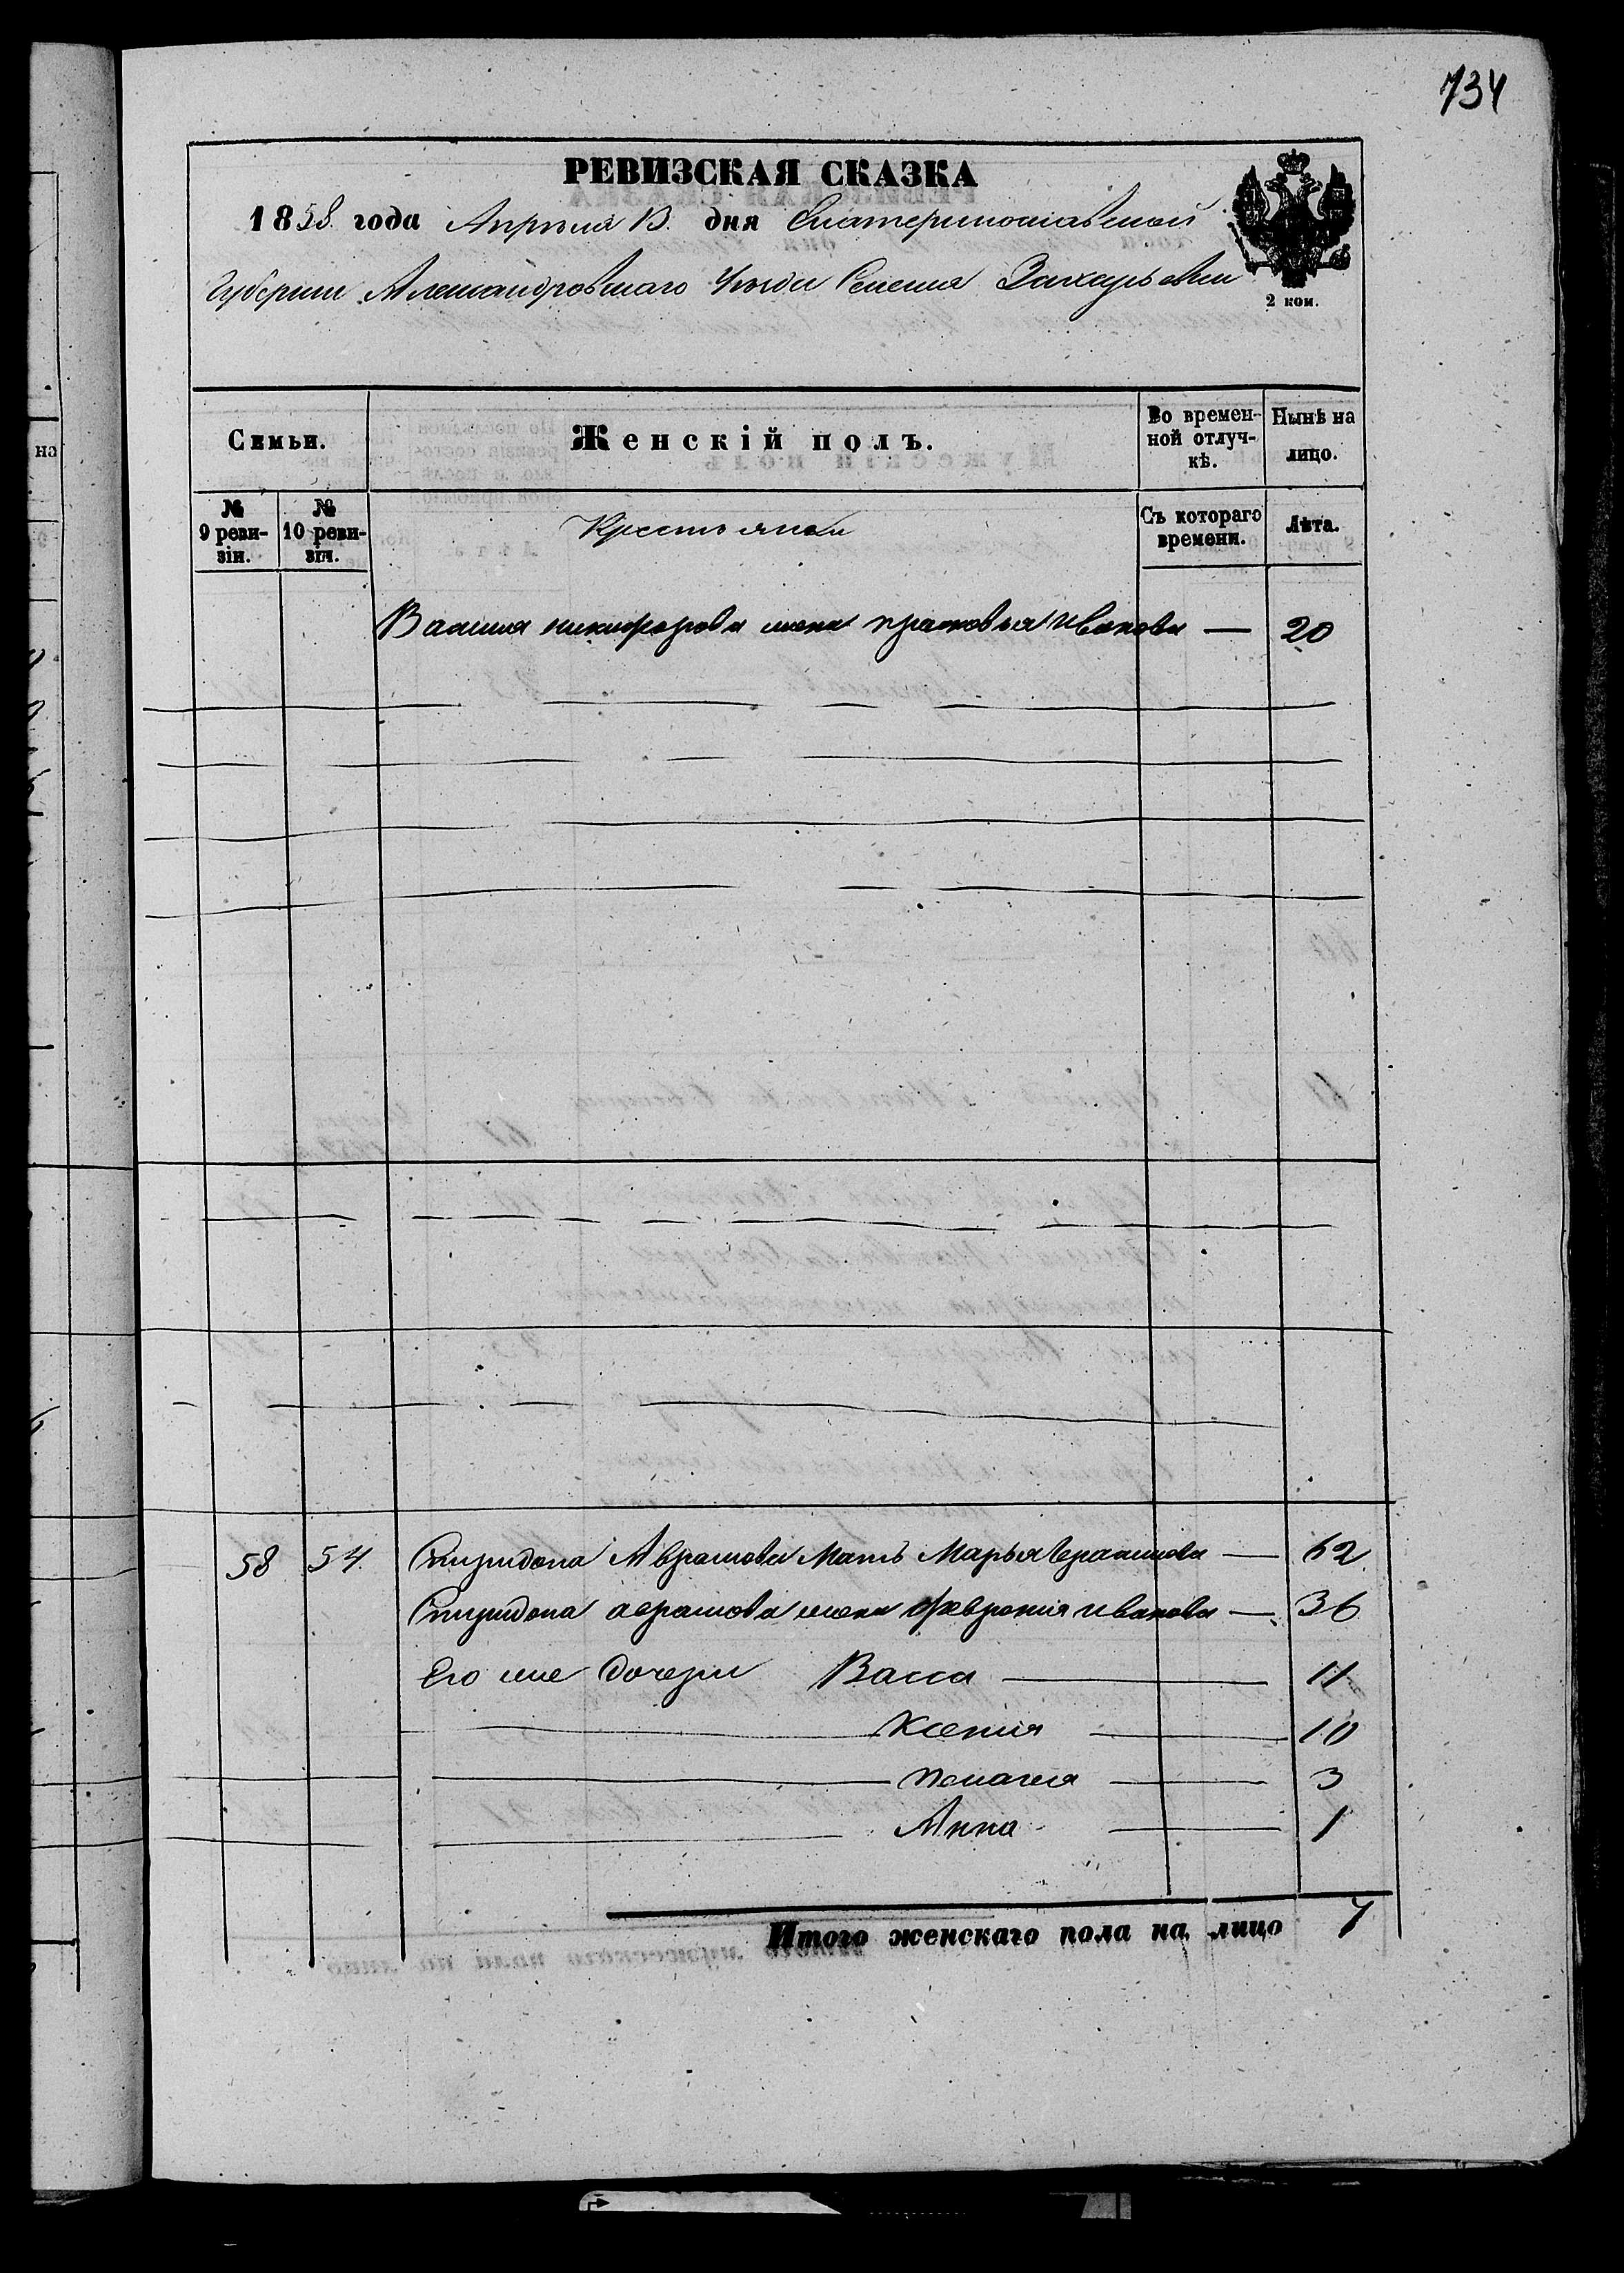 734
РЕВИЗСКАЯ СКАЗКА
1858 года Апреля 13 дня Екатеринославской
Губернии Александровскаго Уезда Селения Захарьевки
2 коп.
Семьи.
Женскій полъ.
Во времен-
ной отлуч-
кѣ.
Нынѣ на
лицо.
№
9 реви-
зіи.
№
10 реви-
зіи.
Крестьянки
Съ котораго
времени.
Лѣта.
Василия никифорова жена прасковья Иванова — 20
58 54. Спиридона Аврамова Мать Марья — 62
Спиридона аврамова жена феврония иванова — 36
Его же дочери Васса — 11
Ксения — 10
пелагея — 3
Анна — 1
Итого женскаго пола на лицо 7
на